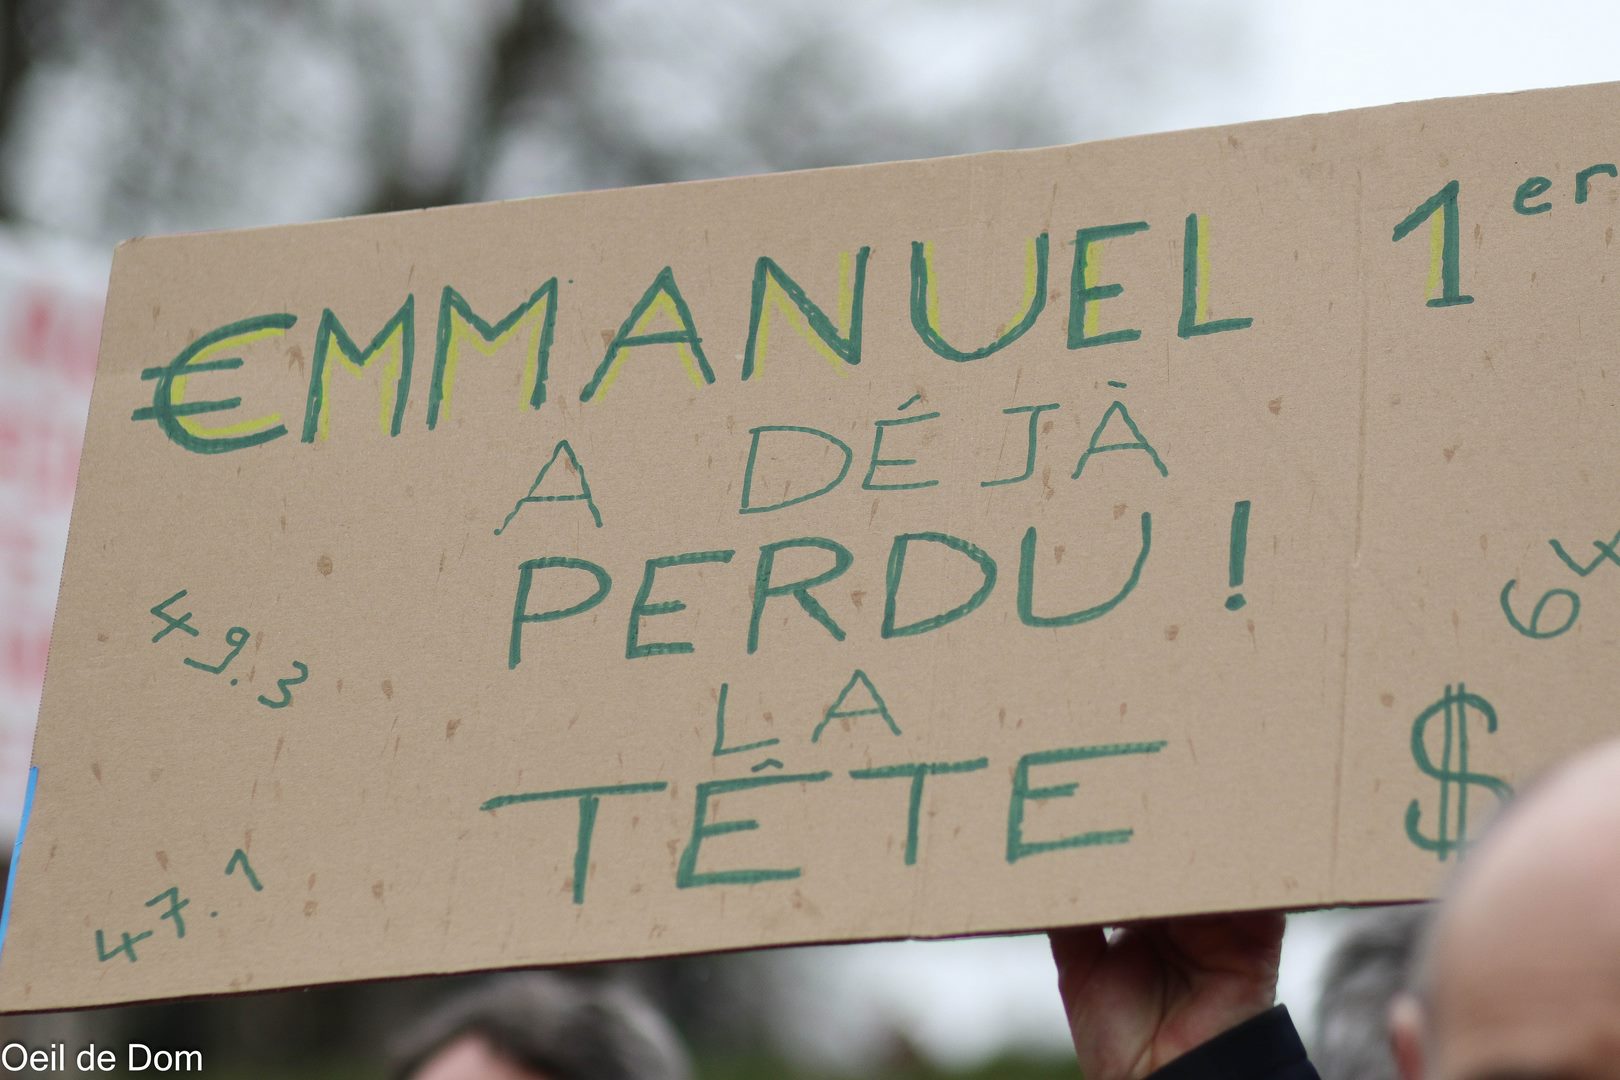 €MMANUEL 1er
A DÉJÀ
PERDU !
LA
TÊTE
49.3
47.1
$
Oeil de Dom